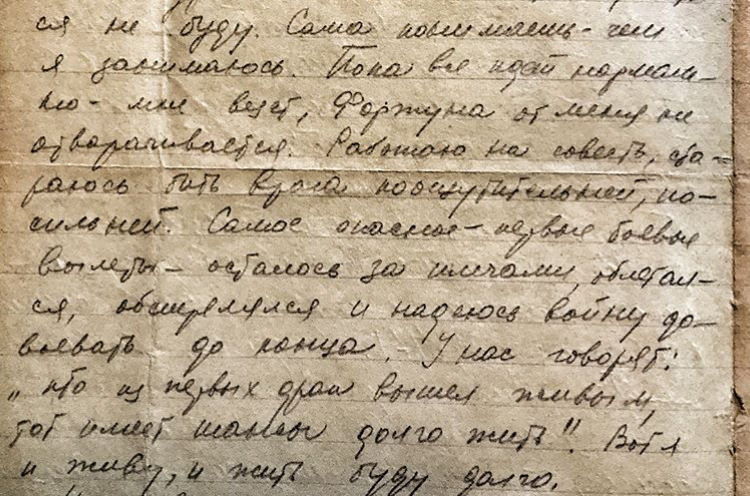 ся не буду. Сама понимаешь - чем
я занимаюсь. Пока все идет нормаль-
но - мне везет, Фортуна от меня не
отворачивается. Работаю на совесть, ста-
раюсь бить врага поощутительней, по-
сильней. Самое опасное - первые боевые
вылеты - осталось за плечами, облетал-
ся, обстрелялся и надеюсь войну до-
воевать до конца. - У нас говорят:
„кто из первых драк вышел живым,
тот имеет шансы долго жить". Вот я
и живу, и жить буду долго.